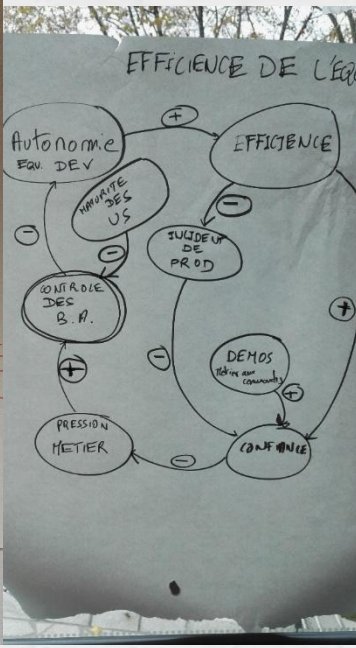 EFFICIENCE DE L'ÉQU
Autonomie
EQU. DEV
+
EFFICIENCE
MATURITE
DES
US
-
-
-
INCIDENT
DE
PROD
CONTROLE
DES
B.A.
+
+
-
DEMOS
+
PRESSION
METIER
-
CONFIANCE